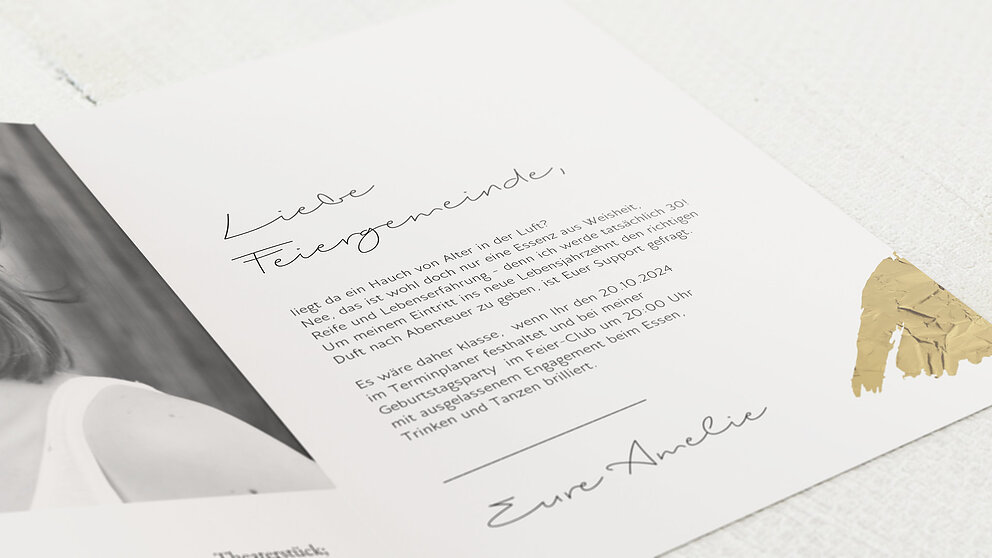 Liebe
Feiergemeinde,
liegt da ein Hauch von Alter in der Luft?
Nee, das ist wohl doch nur eine Essenz aus Weisheit,
Reife und Lebenserfahrung - denn ich werde tatsächlich 30!
Um meinem Eintritt ins neue Lebensjahrzehnt den richtigen
Duft nach Abenteuer zu geben, ist Euer Support gefragt.
Es wäre daher klasse, wenn Ihr den 20.10.2024
im Terminplaner festhaltet und bei meiner
Geburtstagsparty im Feier-Club um 20:00 Uhr
mit ausgelassenem Engagement beim Essen,
Trinken und Tanzen brilliert.
Eure Amelie
Theaterstück;